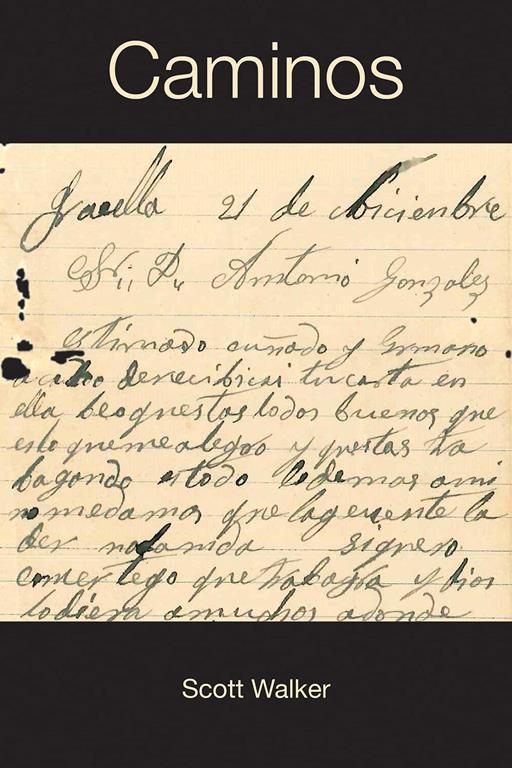 Caminos
21 de Diciembre
Sr. D. Antonio Gonzalez
Estimado cuñado y ermano
acabo derecibir tucarta en
ella beoquestaslodos buenos que
esloquemealegro y questas tra
bagando todo lodemas ami
nomedamas quelagenente la
der nofamida siquero
comertego quetrabagar y dios
lodiera amuchos adonde
Scott Walker